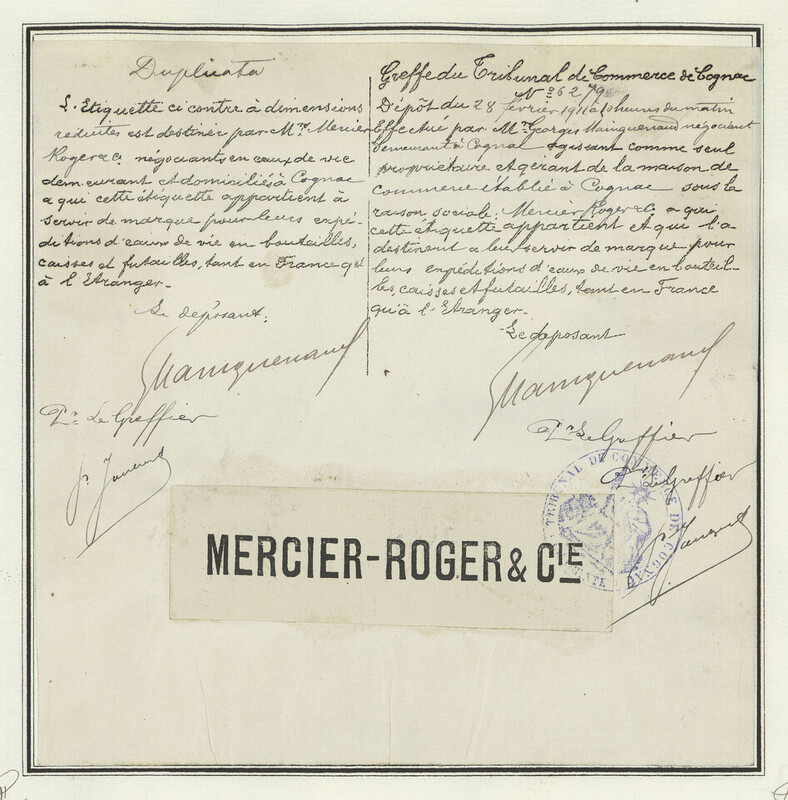 Duplicata
L'Etiquette ci contre à dimensions
réduites est destinée par Mrs Mercier
Roger & Cie négociants en eaux de vie
demeurant et domiciliés à Cognac
a qui cette étiquette appartient à
servir de marque pour leurs expé-
ditions d'eaux de vie en bouteilles,
caisses et futailles, tant en France qu'
à l'Etranger.
Le déposant:
GMainguenaud
Pr. Le Greffier
Greffe du Tribunal de Commerce de Cognac
No 6279
Dépôt du 28 février 1911 à heures du matin
Effectué par Mr Georges Mainguenaud négociant
demeurant à Cognac agissant comme seul
propriétaire et gérant de la maison de
commerce établie à Cognac sous la
raison sociale: Mercier Roger & Cie a qui
cette étiquette appartient et qui l'a
destinent a leur servir de marque pour
leurs expéditions d'eaux de vie en bouteil-
les, caisses et futailles, tant en France
qu'à l'Etranger.
Le deposant
GMainguenaud
Pr Le Greffier
Pr Le Greffier
TRIBUNAL DE COMMERCE DE COGNAC
MERCIER-ROGER & CIE